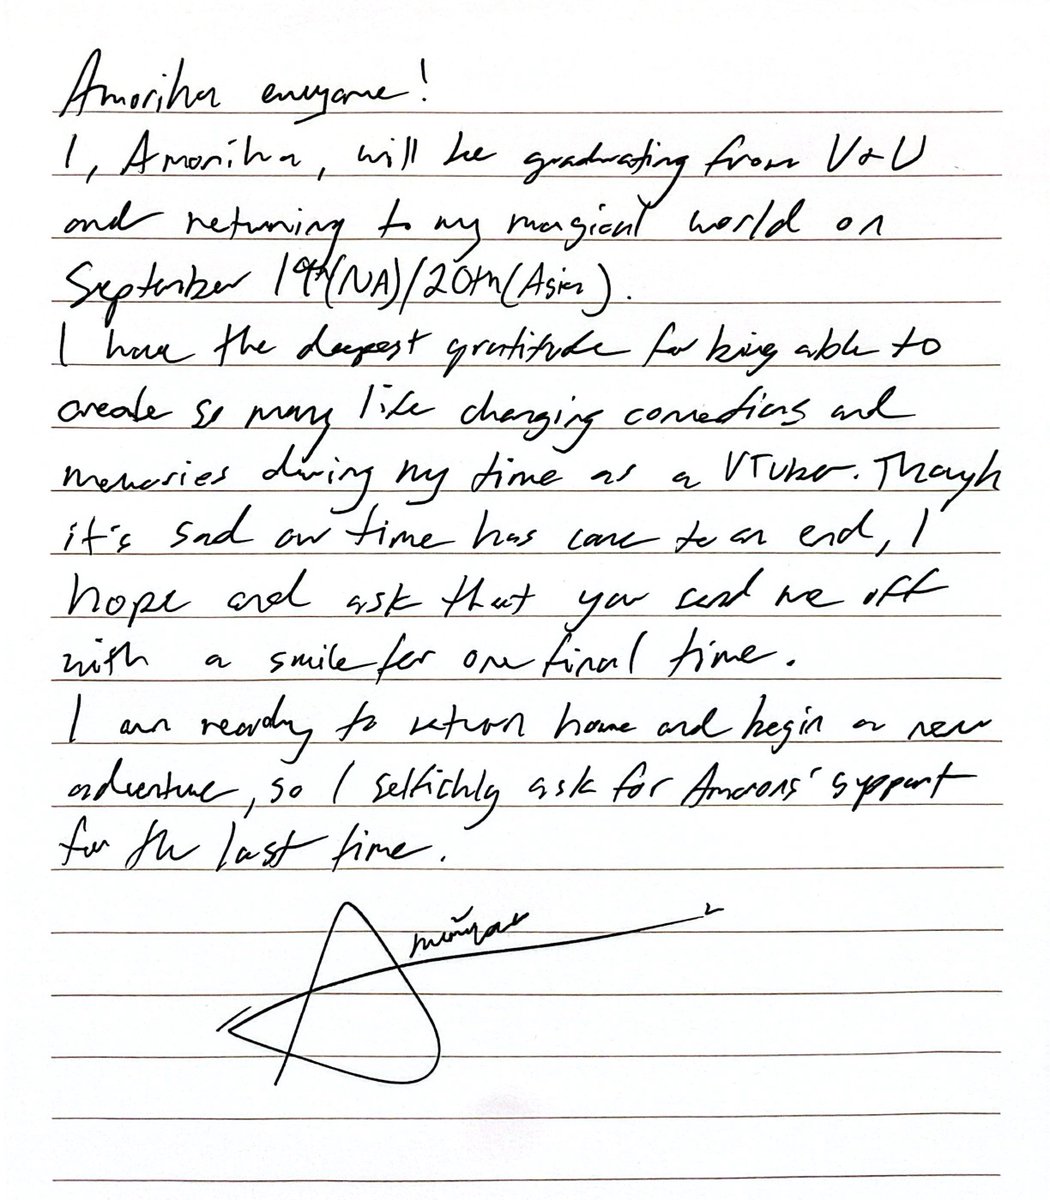 Amoriha everyone!
I, Amoriha, will be graduating from V&U
and returning to my magical world on
September 19th(NA)/20th(Asia).
I have the deepest gratitude for being able to
create so many life changing connections and
memories during my time as a VTuber. Though
it's sad our time has come to an end, I
hope and ask that you send me off
with a smile for one final time.
I am ready to return home and begin a new
adventure, so I selfishly ask for Amorons' support
for the last time.